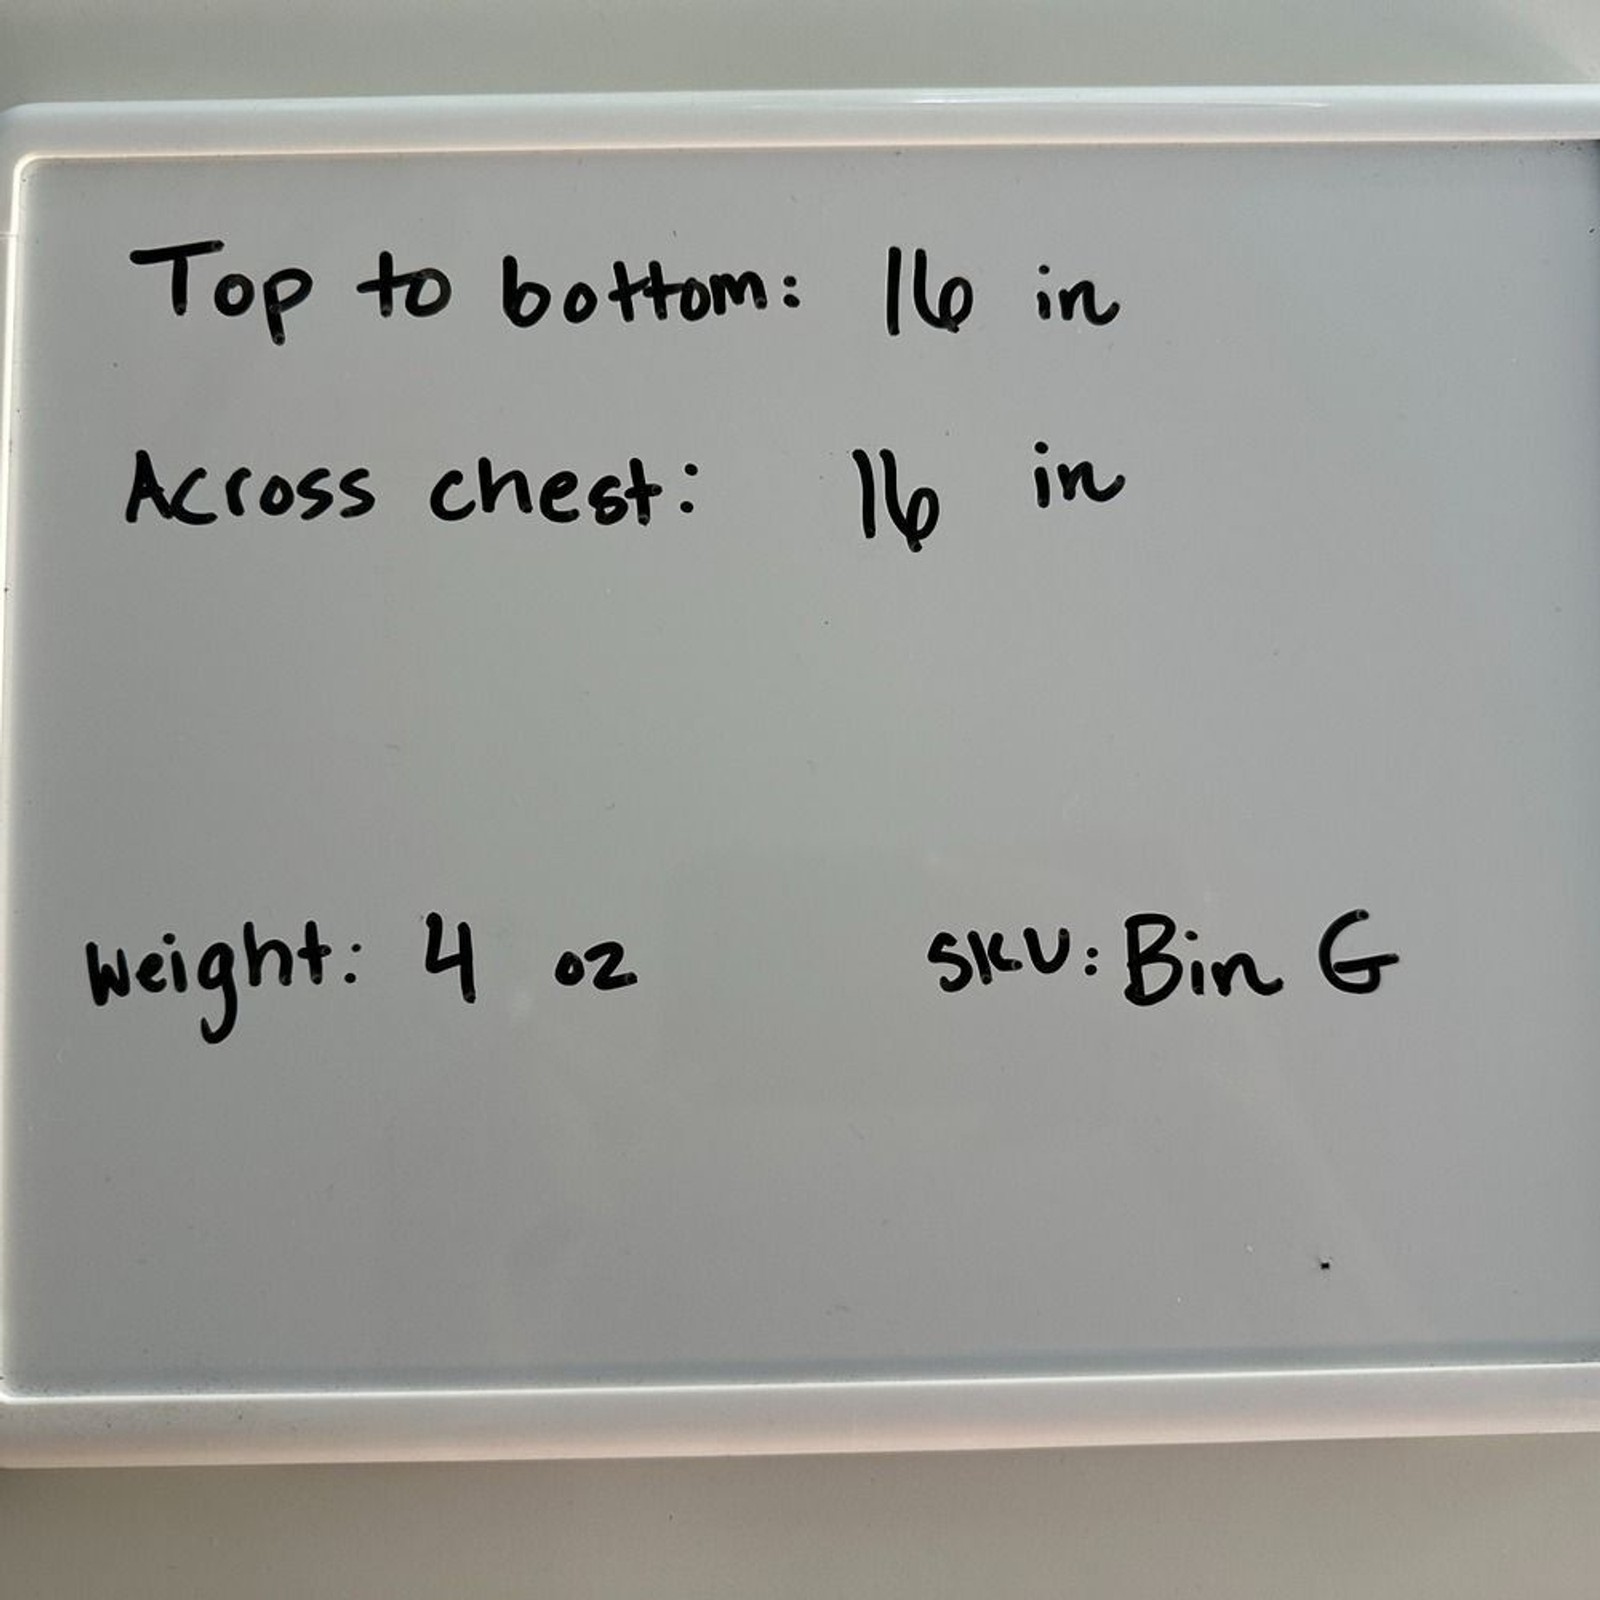 Top to bottom: 16 in
Across chest: 16 in
Weight: 4 oz SKU: Bin G